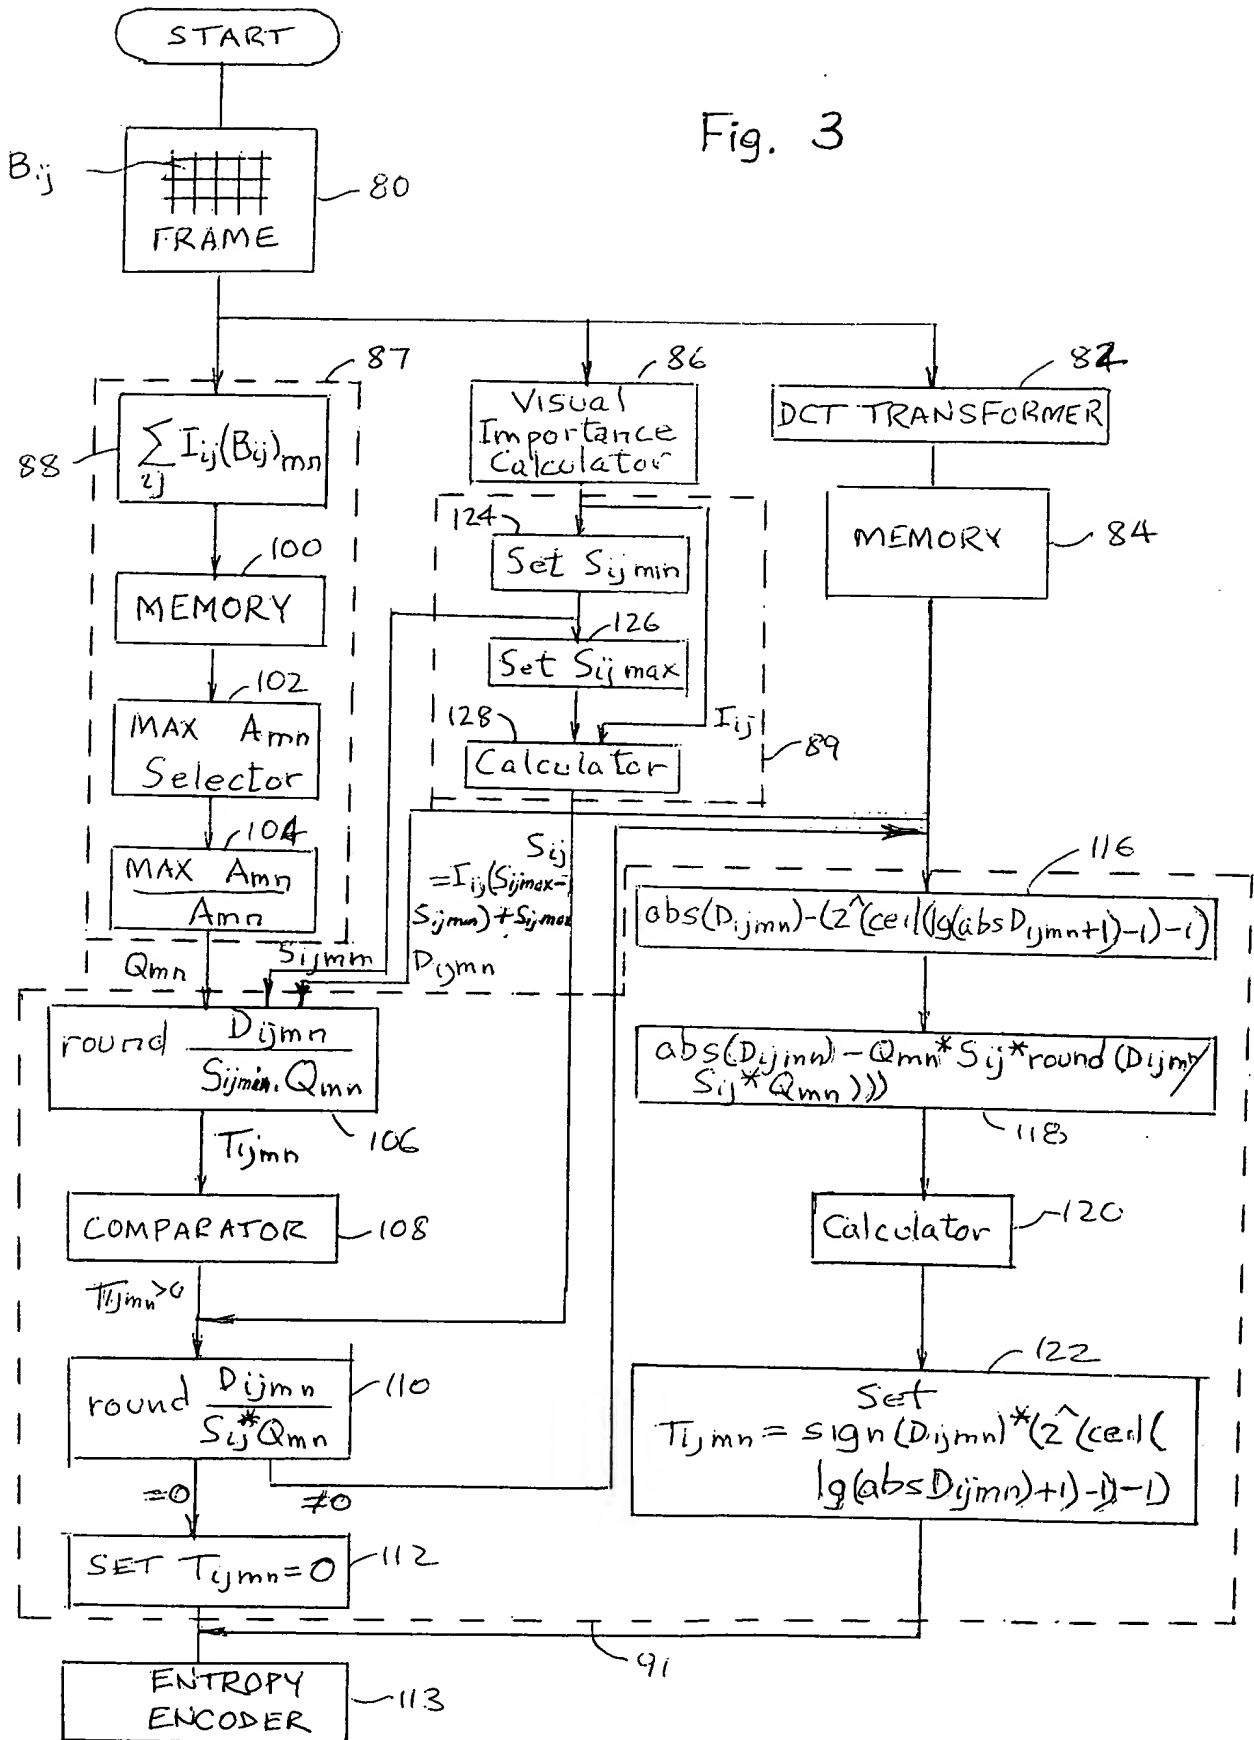 START
Fig. 3
Bij
80
FRAME
87
86
82
88
∑ Iij(Bij)mn
ij
Visual
Importance
Calculator
DCT TRANSFORMER
124
100
MEMORY
Set Sijmin
MEMORY
84
126
Set Sijmax
102
MAX Amn
Selector
128
Iij
Calculator
89
104
MAX Amn
Amn
Sij
=Iij(Sijmax-
Sijmin)+Sijmax
116
abs(Dijmn)-(2^(ceil(lg(absDijmn+1)-1)-1)
Qmn
Sijmm
Dijmn
round Dijmn
Sijmin.Qmn
106
abs(Dijmn)-Qmn*Sij*round(Dijmn/
Sij*Qmn)))
118
Tijmn
COMPARATOR
108
Calculator
120
Tijmn>0
round Dijmn
Sij*Qmn
110
122
Set
Tijmn=sign(Dijmn)*(2^(ceil(
lg(absDijmn)+1)-1)-1)
=0
≠0
SET Tijmn=0
112
91
ENTROPY
ENCODER
113